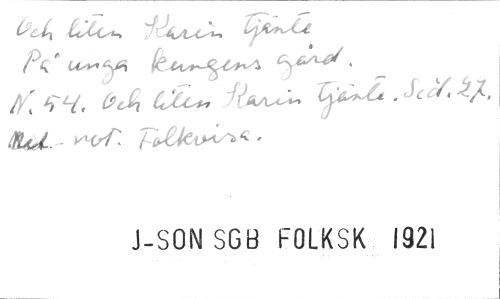 Och liten Karin tjänte
På unga kungens gård.
N. 54. Och liten Karin tjänte. Sid. 27.
Med not. Folkvisa.
J-SON SGB FOLKSK 1921